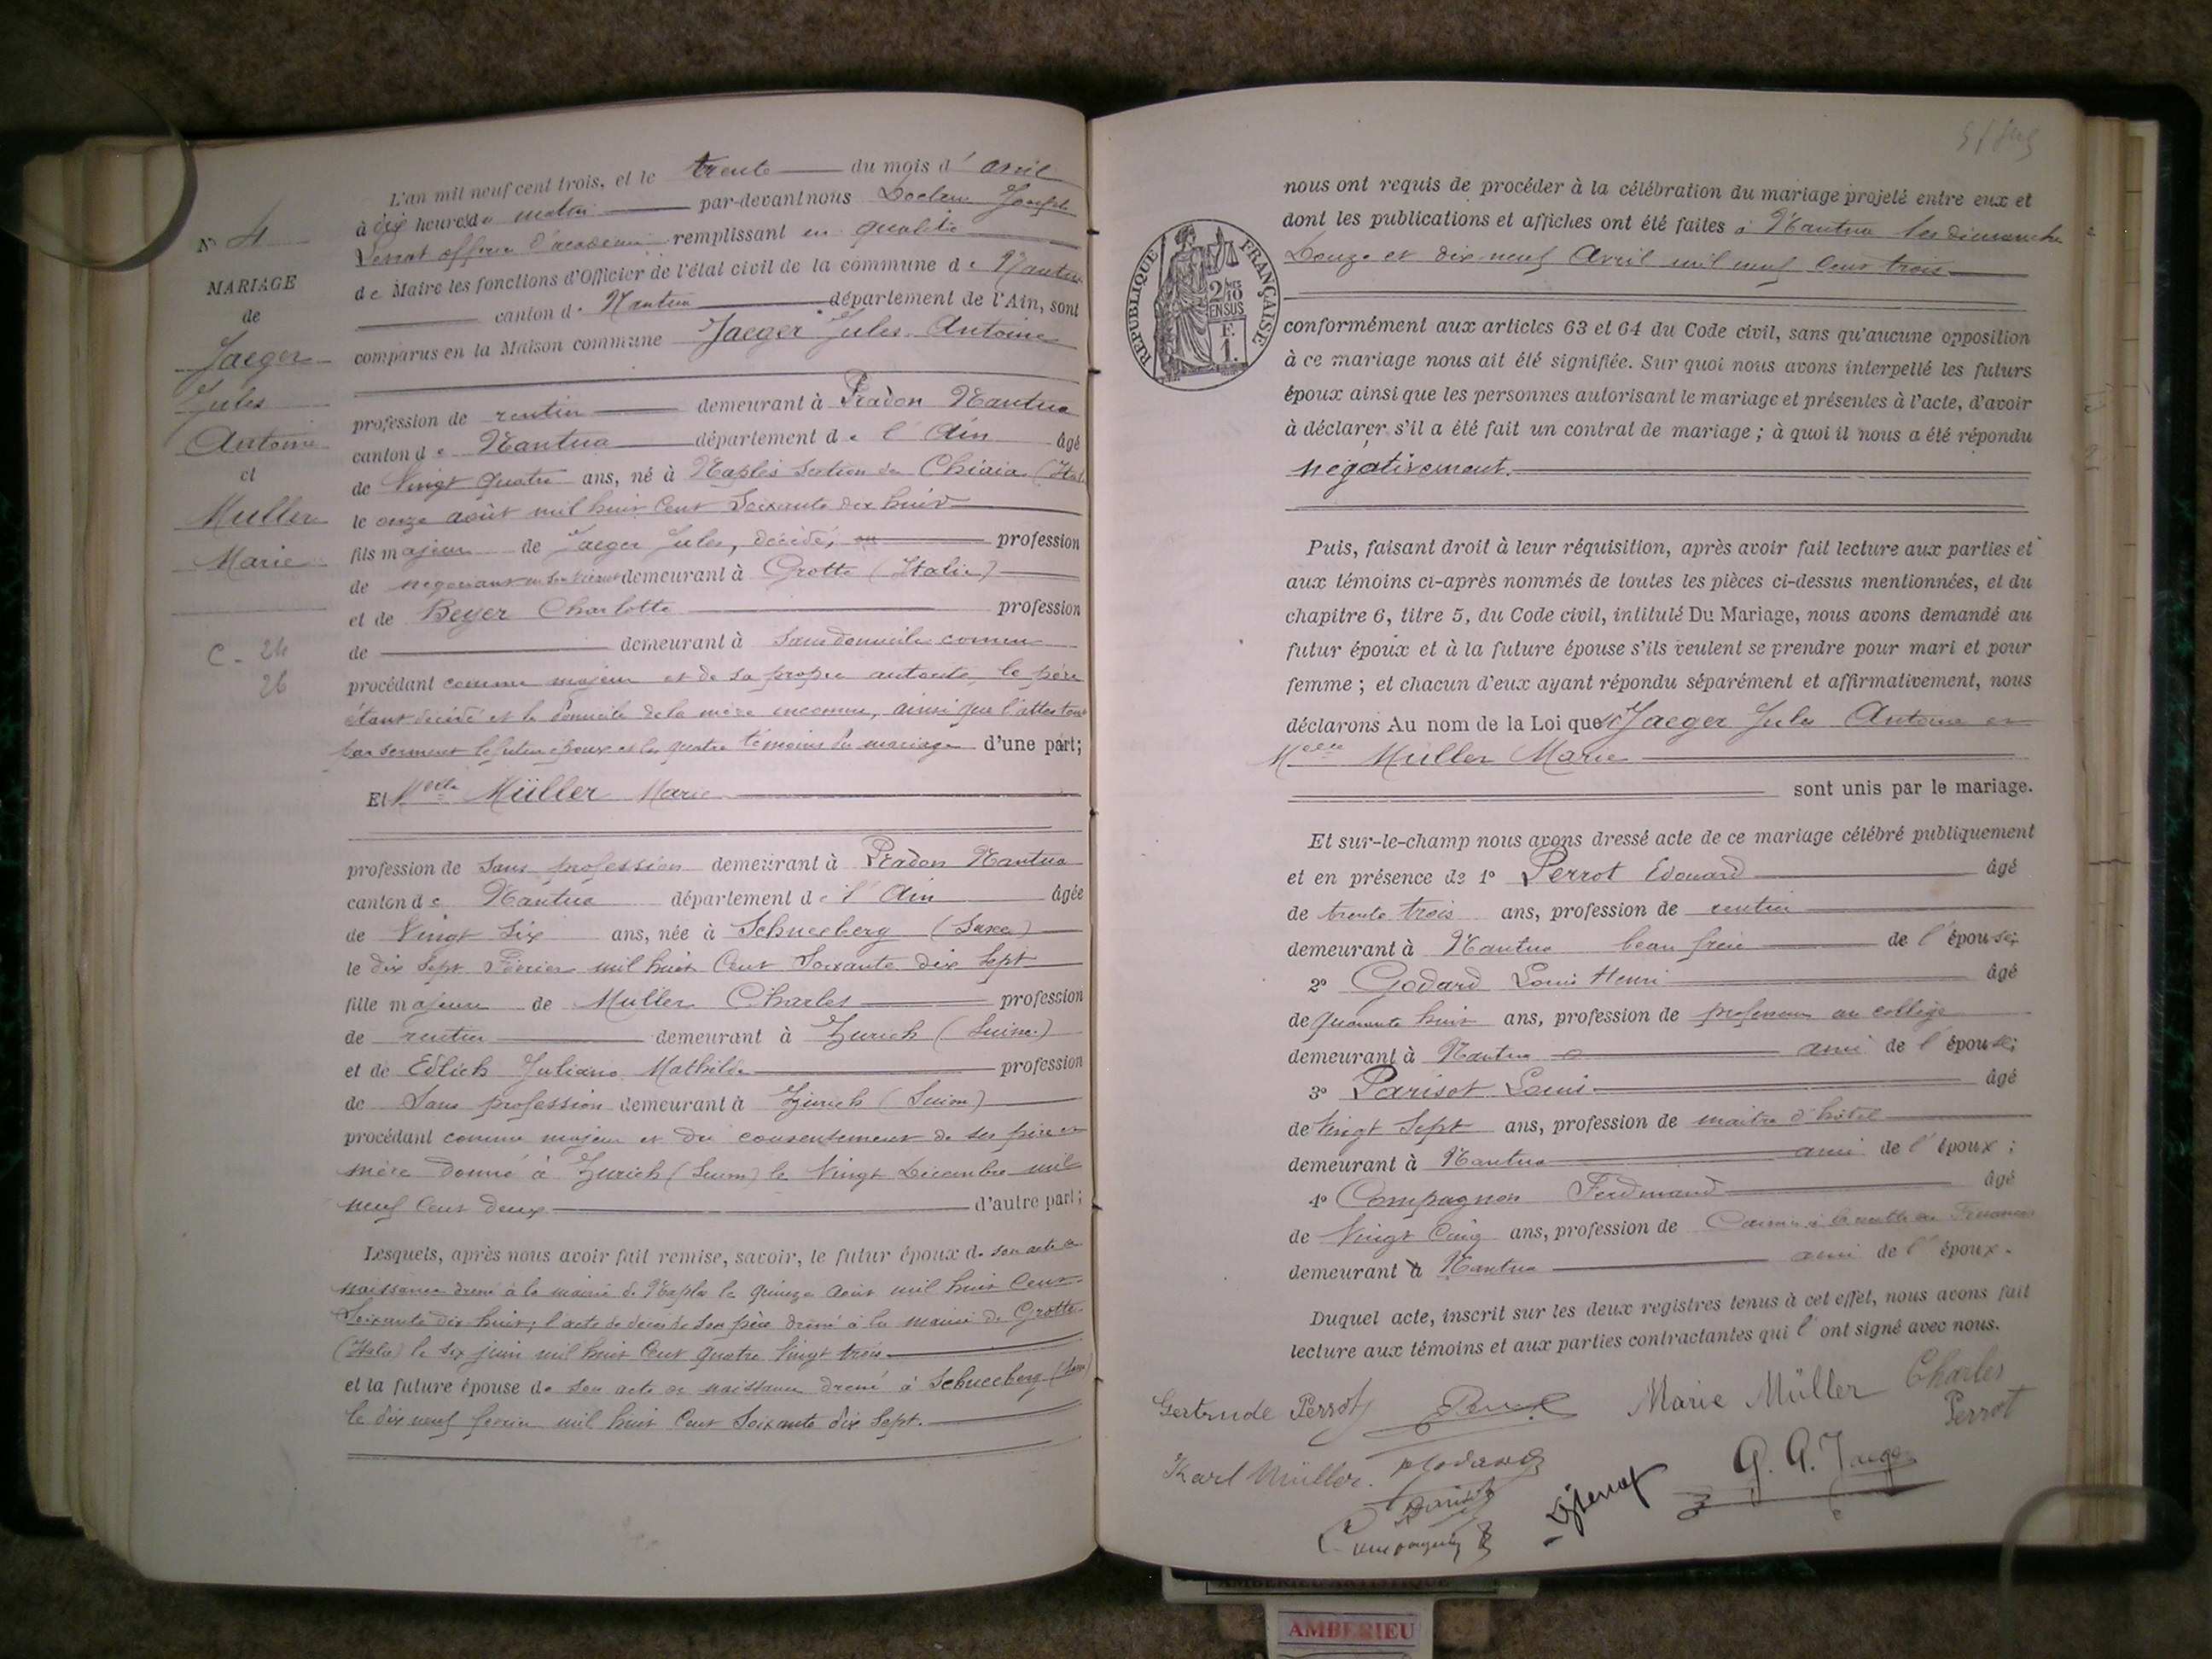 N° 4
MARIAGE
de
Jaeger
Jules
Antoine
et
Muller
Marie
C - 24
26
L'an mil neuf cent trois, et le trente du mois d'avril
à dix heures du matin par-devant nous Docteur Joseph
officier d'académie remplissant en qualité
de Maire les fonctions d'Officier de l'état civil de la commune de Nantua
canton de Nantua département de l'Ain, sont
comparus en la Maison commune Jaeger Jules Antoine
profession de rentier demeurant à Pradon Nantua
canton de Nantua département de l'Ain âgé
de Vingt quatre ans, né à Naples section de Chiaia (Ital
le onze août mil huit Cent Soixante dix huit
fils majeur de Jaeger Jules, décédé, profession
de négociant en son vivant demeurant à Grotte (Italie)
et de Beyer Charlotte profession
de demeurant à Sans domicile connu
procédant comme majeur et de sa propre autorité, le père
étant décédé et le domicile de la mère inconnu, ainsi que l'attestent
par serment le futur époux et les quatre témoins du mariage d'une part;
Et Melle Müller Marie
profession de Sans profession demeurant à Pradon Nantua
canton de Nantua département de l'Ain âgée
de Vingt Six ans, née à Schneeberg (Saxe)
le dix Sept Février mil huit Cent Soixante dix Sept
fille majeure de Muller Charles profession
de rentier demeurant à Zurich (Suisse)
et de Edlich Juliane Mathilde profession
de Sans profession demeurant à Zurich (Suisse)
procédant comme majeur et du consentement de ses père et
mère donné à Zurich (Suisse) le Vingt Décembre mil
neuf Cent deux d'autre part;
Lesquels, après nous avoir fait remise, savoir, le futur époux de son acte de
naissance dressé à la mairie de Naples le quinze août mil huit Cent
Soixante dix huit; l'acte de décès de son père dressé à la mairie de Grotte
(Italie) le six juin mil huit Cent quatre Vingt trois
et la future épouse de son acte de naissance dressé à Schneeberg (Saxe)
le dix neuf février mil huit Cent Soixante dix Sept.
nous ont requis de procéder à la célébration du mariage projeté entre eux et
dont les publications et affiches ont été faites à Nantua les dimanches
Douze et dix-neuf Avril mil neuf Cent trois
REPUBLIQUE FRANÇAISE
2/10 EN SUS
F.
1.
conformément aux articles 63 et 64 du Code civil, sans qu'aucune opposition
à ce mariage nous ait été signifiée. Sur quoi nous avons interpellé les futurs
époux ainsi que les personnes autorisant le mariage et présentes à l'acte, d'avoir
à déclarer s'il a été fait un contrat de mariage ; à quoi il nous a été répondu
négativement.
Puis, faisant droit à leur réquisition, après avoir fait lecture aux parties et
aux témoins ci-après nommés de toutes les pièces ci-dessus mentionnées, et du
chapitre 6, titre 5, du Code civil, intitulé Du Mariage, nous avons demandé au
futur époux et à la future épouse s'ils veulent se prendre pour mari et pour
femme ; et chacun d'eux ayant répondu séparément et affirmativement, nous
déclarons Au nom de la Loi que Jaeger Jules Antoine et
Melle Müller Marie
sont unis par le mariage.
Et sur-le-champ nous avons dressé acte de ce mariage célébré publiquement
et en présence de 1° Perrot Edouard âgé
de trente trois ans, profession de rentier
demeurant à Nantua beau frère de l'épouse;
2° Godard Louis Henri âgé
de Quarante huit ans, profession de professeur au collège
demeurant à Nantua ami de l'épouse;
3° Parisot Louis âgé
de Vingt Sept ans, profession de maître d'hôtel
demeurant à Nantua ami de l'époux ;
4° Compagnon Ferdinand âgé
de Vingt Cinq ans, profession de Commis à la recette des Finances
demeurant à Nantua ami de l'époux.
Duquel acte, inscrit sur les deux registres tenus à cet effet, nous avons fait
lecture aux témoins et aux parties contractantes qui l'ont signé avec nous.
Gertrude Perrot Perrot Marie Müller Charles
Perrot
Karl Müller. HGodard G. A. Jaeger
Parisot
Compagnon
AMBERIEU ARTISTIQUE
AMBERIEU